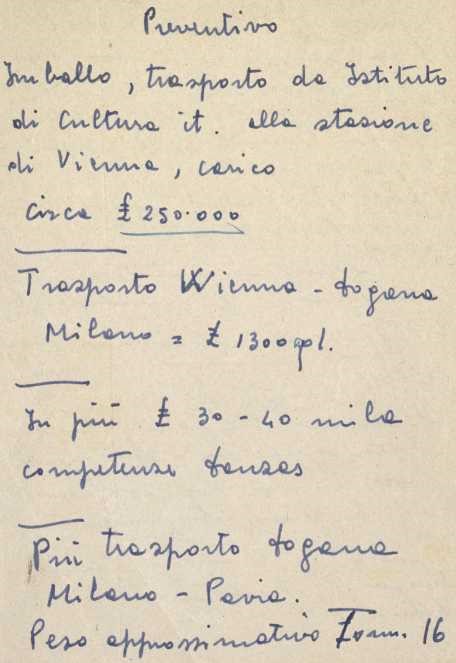 Preventivo
Imballo, trasporto da Istituto
di Cultura it. alla stazione
di Vienna, carico
circa £ 250.000
Trasporto Wienna - dogana
Milano = £ 1300 ql.
In più £ 30 - 40 mila
competenze
Più trasporto dogana
Milano - Pavia.
Peso approssimativo Tonn. 16